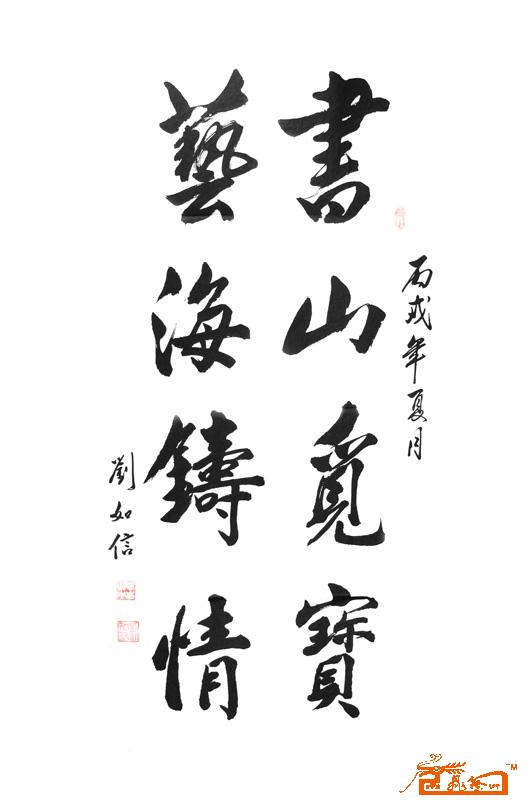 丙戌年夏月
書山覓寶
藝海鑄情
劉如信